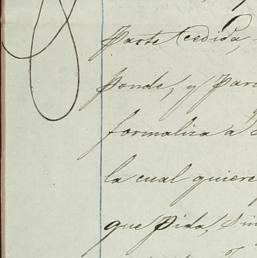 Parte Cedida
ponde, y Para
formaliza a
la cual quiere
que Pida, Sin